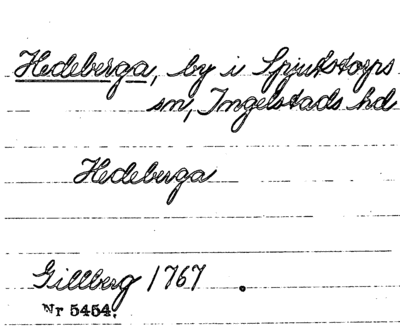 Hedeberga, by i Spjutstorps
sn, Ingelstads hd
Hedeberga
Gillberg 1767.
Nr 5454.